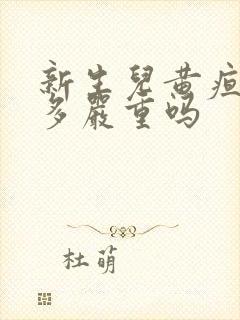 新生兒黄疸
多嚴重吗
杜萌